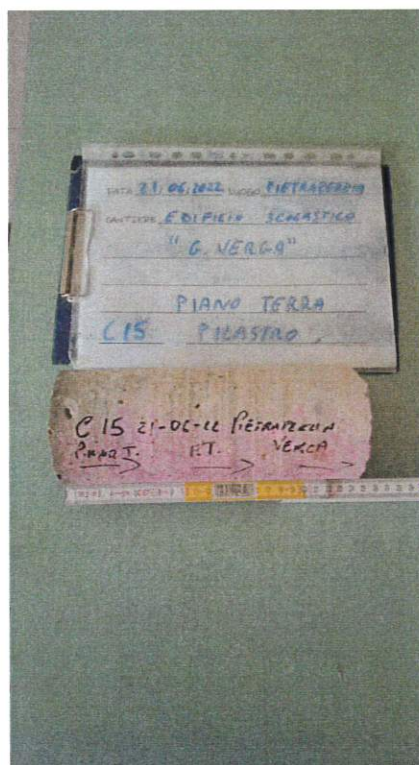 DATA 21.06.2022 LUOGO PIETRAPERZIA
CANTIERE EDIFICIO SCOLASTICO
"G. VERGA"
PIANO TERRA
C15 PILASTRO
C 15 21-06-22 PIETRAPERZIA
P.T. VERGA